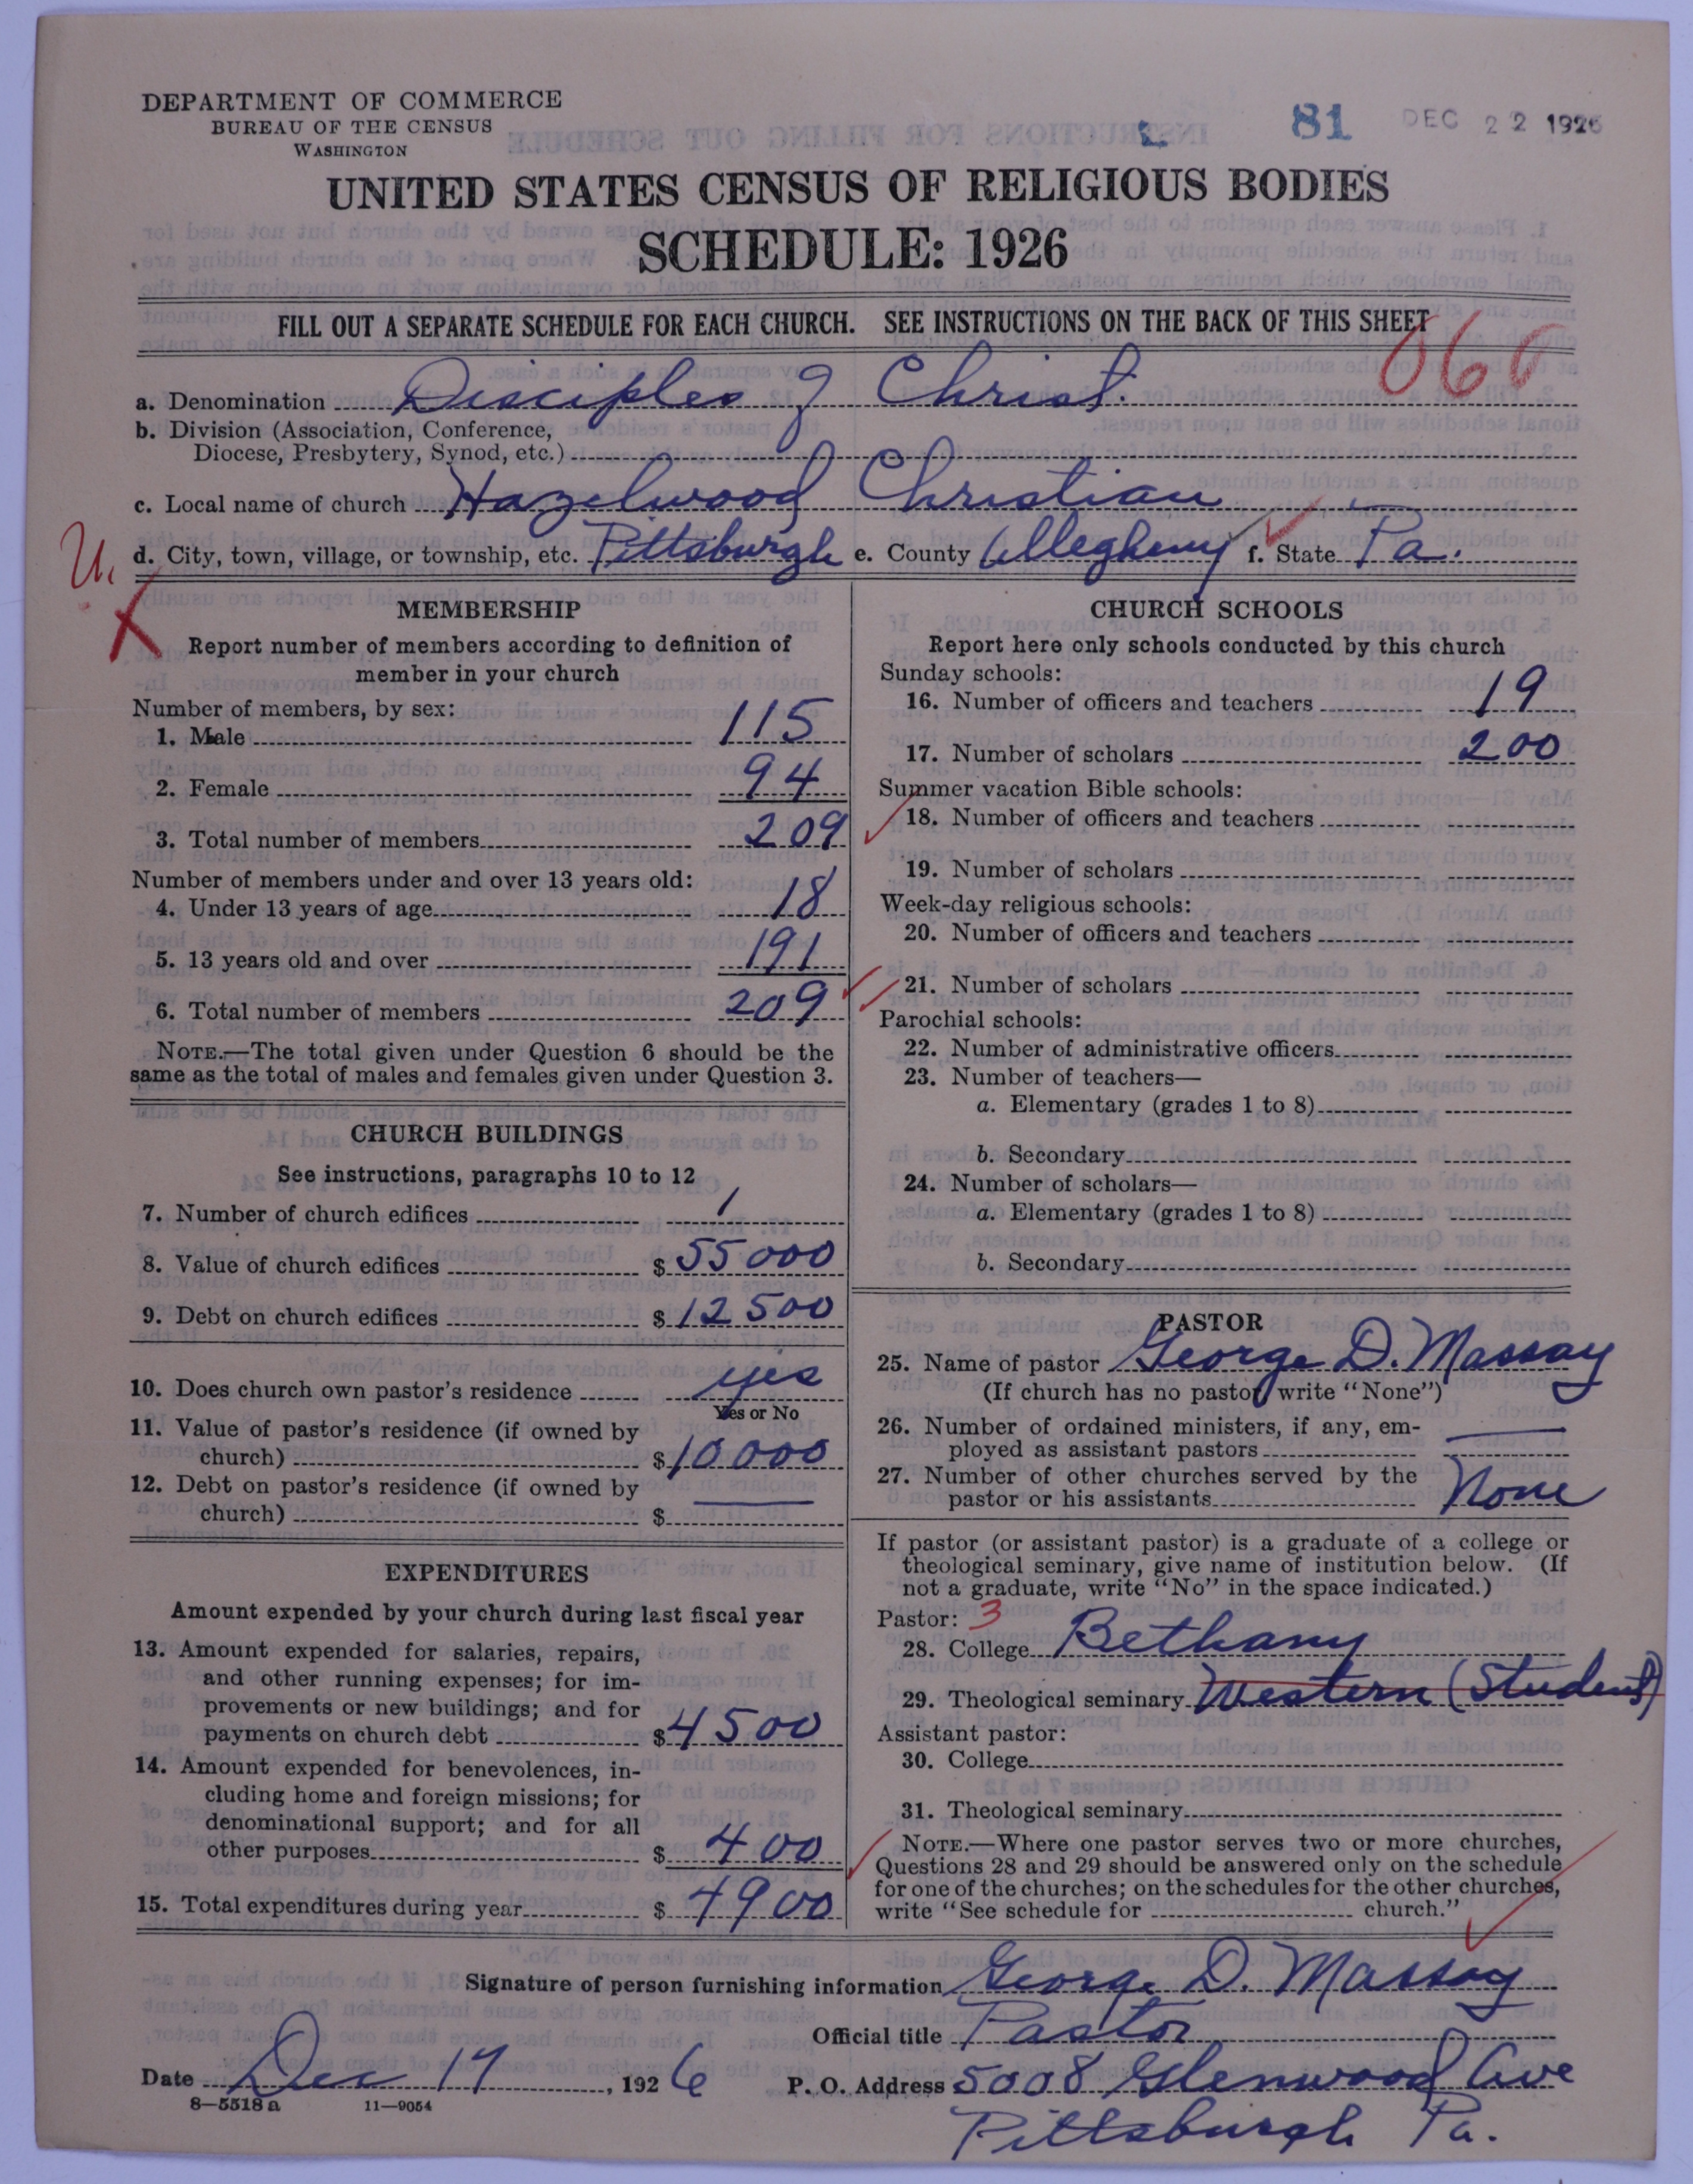 DEPARTMENT OF COMMERCE
BUREAU OF THE CENSUS
WASHINGTON
81 DEC 22 1926
UNITED STATES CENSUS OF RELIGIOUS BODIES
SCHEDULE: 1926
FILL OUT A SEPARATE SCHEDULE FOR EACH CHURCH. SEE INSTRUCTIONS ON THE BACK OF THIS SHEET
060
a. Denomination Disciples of Christ.
b. Division (Association, Conference,
Diocese, Presbytery, Synod, etc.)
c. Local name of church Hazelwood Christian
U.
d. City, town, village, or township, etc. Pittsburgh e. County Allegheny f. State Pa.
X
MEMBERSHIP
Report number of members according to definition of
member in your church
Number of members, by sex:
1. Male 115
2. Female 94
3. Total number of members 209
Number of members under and over 13 years old:
4. Under 13 years of age 18
5. 13 years old and over 191
6. Total number of members 209
NOTE.—The total given under Question 6 should be the
same as the total of males and females given under Question 3.
CHURCH BUILDINGS
See instructions, paragraphs 10 to 12
7. Number of church edifices 1
8. Value of church edifices $ 55000
9. Debt on church edifices $ 12500
10. Does church own pastor's residence yes
Yes or No
11. Value of pastor's residence (if owned by
church) $ 10000
12. Debt on pastor's residence (if owned by
church) $ —
EXPENDITURES
Amount expended by your church during last fiscal year
13. Amount expended for salaries, repairs,
and other running expenses; for im-
provements or new buildings; and for
payments on church debt $ 4500
14. Amount expended for benevolences, in-
cluding home and foreign missions; for
denominational support; and for all
other purposes $ 400
15. Total expenditures during year $ 4900
CHURCH SCHOOLS
Report here only schools conducted by this church
Sunday schools:
16. Number of officers and teachers 19
17. Number of scholars 200
Summer vacation Bible schools:
18. Number of officers and teachers
19. Number of scholars
Week-day religious schools:
20. Number of officers and teachers
21. Number of scholars
Parochial schools:
22. Number of administrative officers
23. Number of teachers—
a. Elementary (grades 1 to 8)
b. Secondary
24. Number of scholars—
a. Elementary (grades 1 to 8)
b. Secondary
PASTOR
25. Name of pastor George D. Massay
(If church has no pastor write "None")
26. Number of ordained ministers, if any, em-
ployed as assistant pastors —
27. Number of other churches served by the
pastor or his assistants None
If pastor (or assistant pastor) is a graduate of a college or
theological seminary, give name of institution below. (If
not a graduate, write "No" in the space indicated.)
Pastor: 3
28. College Bethany
29. Theological seminary Western (Student)
Assistant pastor:
30. College
31. Theological seminary
NOTE.—Where one pastor serves two or more churches,
Questions 28 and 29 should be answered only on the schedule
for one of the churches; on the schedules for the other churches,
write "See schedule for church."
Signature of person furnishing information George D. Massay
Official title Pastor
Date Dec 17, 1926 P. O. Address 5008 Glenwood Ave
8—5518 a 11—9054
Pittsburgh Pa.